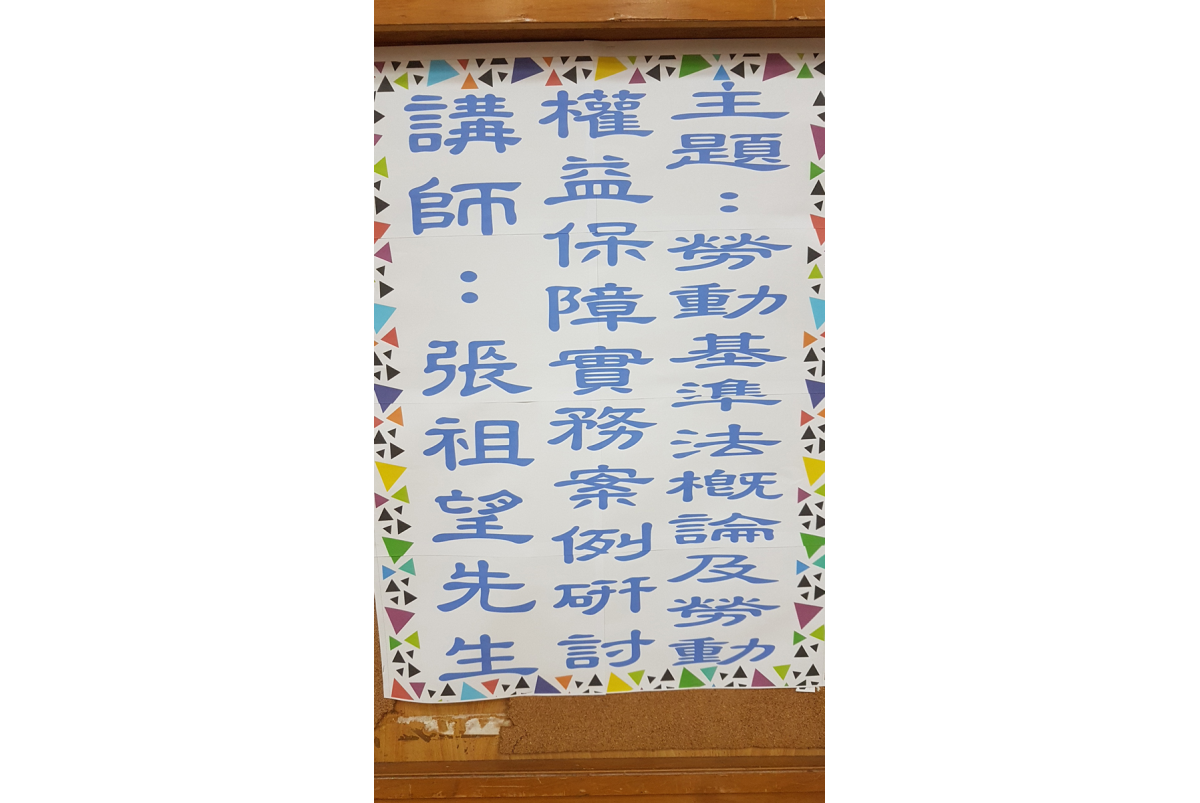 主題：勞動基準法概論及勞動
權益保障實務案例研討
講師：張祖望先生